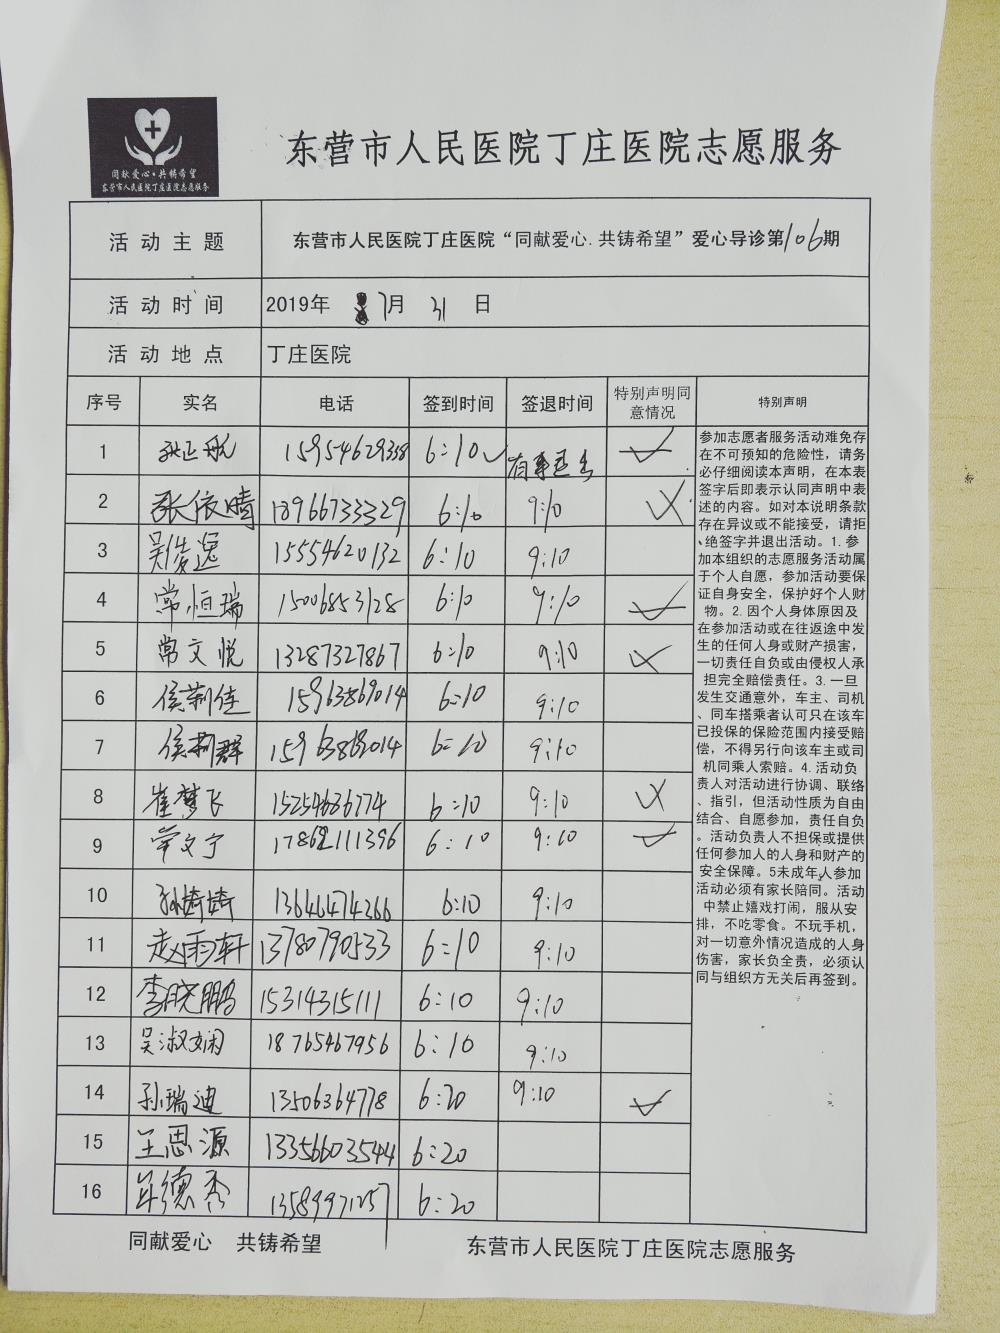 同献爱心·共铸希望
东营市人民医院丁庄医院志愿服务
东营市人民医院丁庄医院志愿服务
活动主题 东营市人民医院丁庄医院“同献爱心.共铸希望”爱心导诊第106期
活动时间 2019年 7月 31 日
活动地点 丁庄医院
序号 实名 电话 签到时间 签退时间 特别声明同意情况 特别声明
1 张正航 15954629338 6:10 有事早走
2 张依晴 18966733329 6:10 9:10
3 吴俊逸 15554620132 6:10 9:10
4 常恒瑞 15006853128 6:10 9:10
5 常文悦 13287327867 6:10 9:10
6 侯荆佳 15963869014 6:10 9:10
7 侯荆群 15963869014 6:10 9:10
8 崔梦飞 15254636774 6:10 9:10
9 常文宁 17862111396 6:10 9:10
10 孙婍婍 13646474366 6:10 9:10
11 赵雨轩 13780790533 6:10 9:10
12 李晓鹏 15314315111 6:10 9:10
13 吴淑娴 18765467956 6:10 9:10
14 孙瑞迪 13506364778 6:20 9:10
15 王思源 13356603544 6:20
16 德秀 13589971257 6:20
参加志愿者服务活动难免存
在不可预知的危险性，请务
必仔细阅读本声明，在本表
签字后即表示认同声明中表
述的内容。如对本说明条款
存在异议或不能接受，请拒
绝签字并退出活动。1.参
加本组织的志愿服务活动属
于个人自愿，参加活动要保
证自身安全，保护好个人财
物。2.因个人身体原因及
在参加活动或在往返途中发
生的任何人身或财产损害，
一切责任自负或由侵权人承
担完全赔偿责任。3.一旦
发生交通意外，车主、司机
、同车搭乘者认可只在该车
已投保的保险范围内接受赔
偿，不得另行向该车主或司
机同乘人索赔。4.活动负
责人对活动进行协调、联络
、指引，但活动性质为自由
结合、自愿参加，责任自负
。活动负责人不担保或提供
任何参加人的人身和财产的
安全保障。5未成年人参加
活动必须有家长陪同。活动
中禁止嬉戏打闹，服从安
排，不吃零食。不玩手机，
对一切意外情况造成的人身
伤害，家长负全责，必须认
同与组织方无关后再签到。
同献爱心 共铸希望 东营市人民医院丁庄医院志愿服务